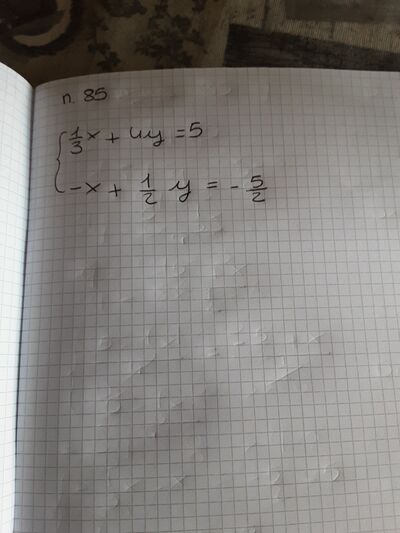 n. 85
1/3 x + 4y = 5
-x + 1/2 y = - 5/2